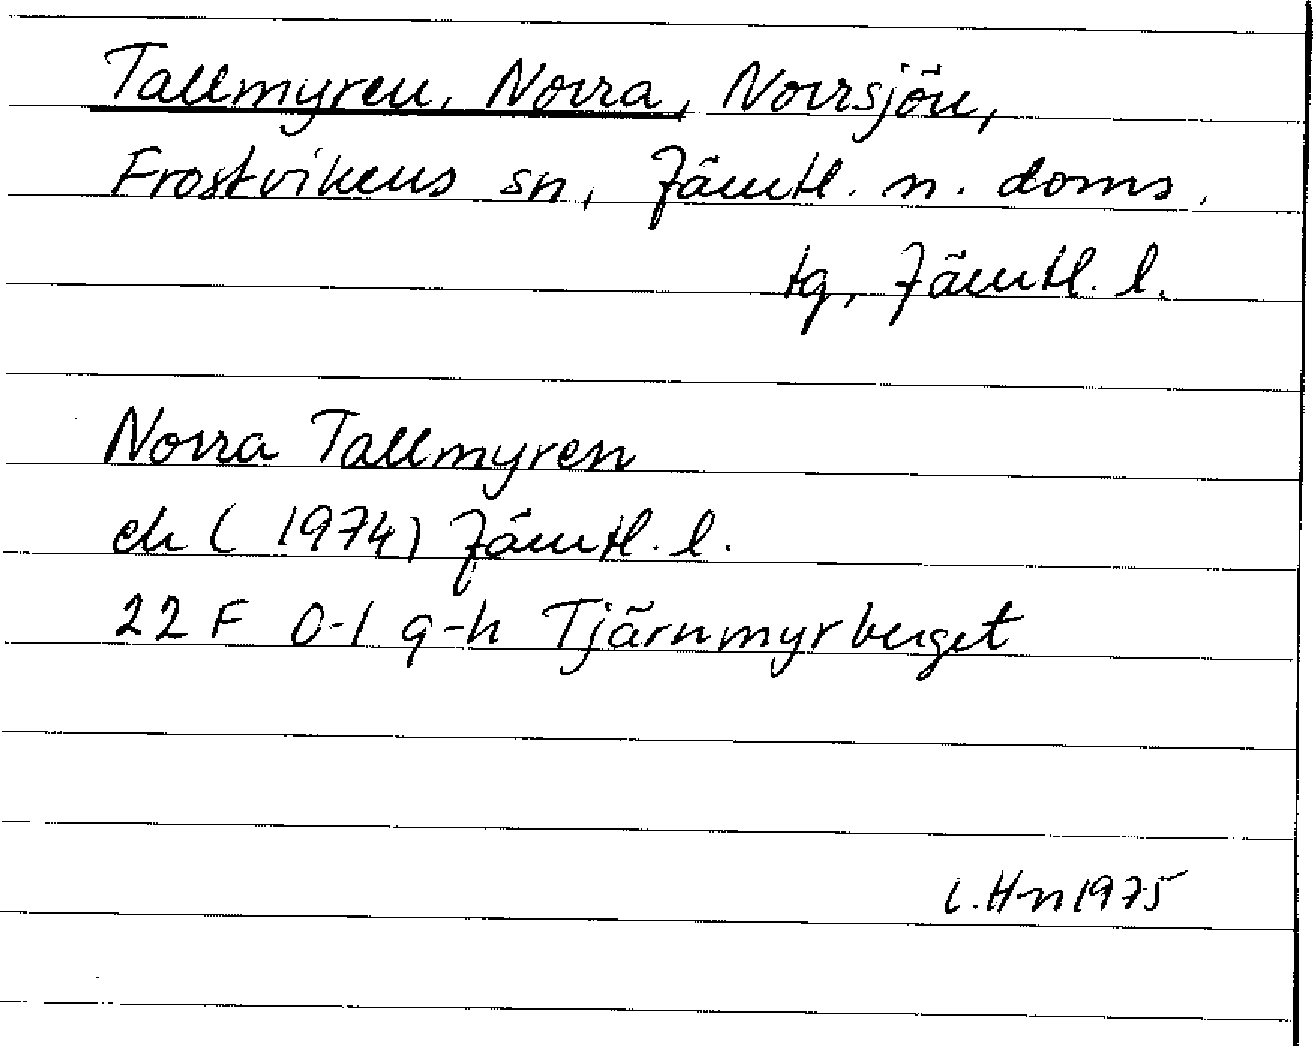 Tallmyren, Norra, Norrsjön,
Frostvikens sn, Jämtl. n. doms.
tg, Jämtl. l.
Norra Tallmyren
ek (1974) Jämtl. l.
22 F 0-1 g-h Tjärnmyrberget
L. Hn 1975